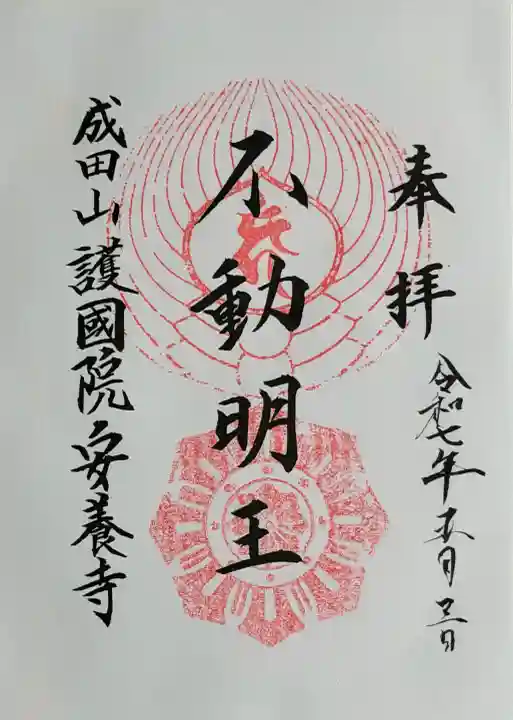 奉拝
令和七年五月三日
不動明王
成田山護國院安養寺